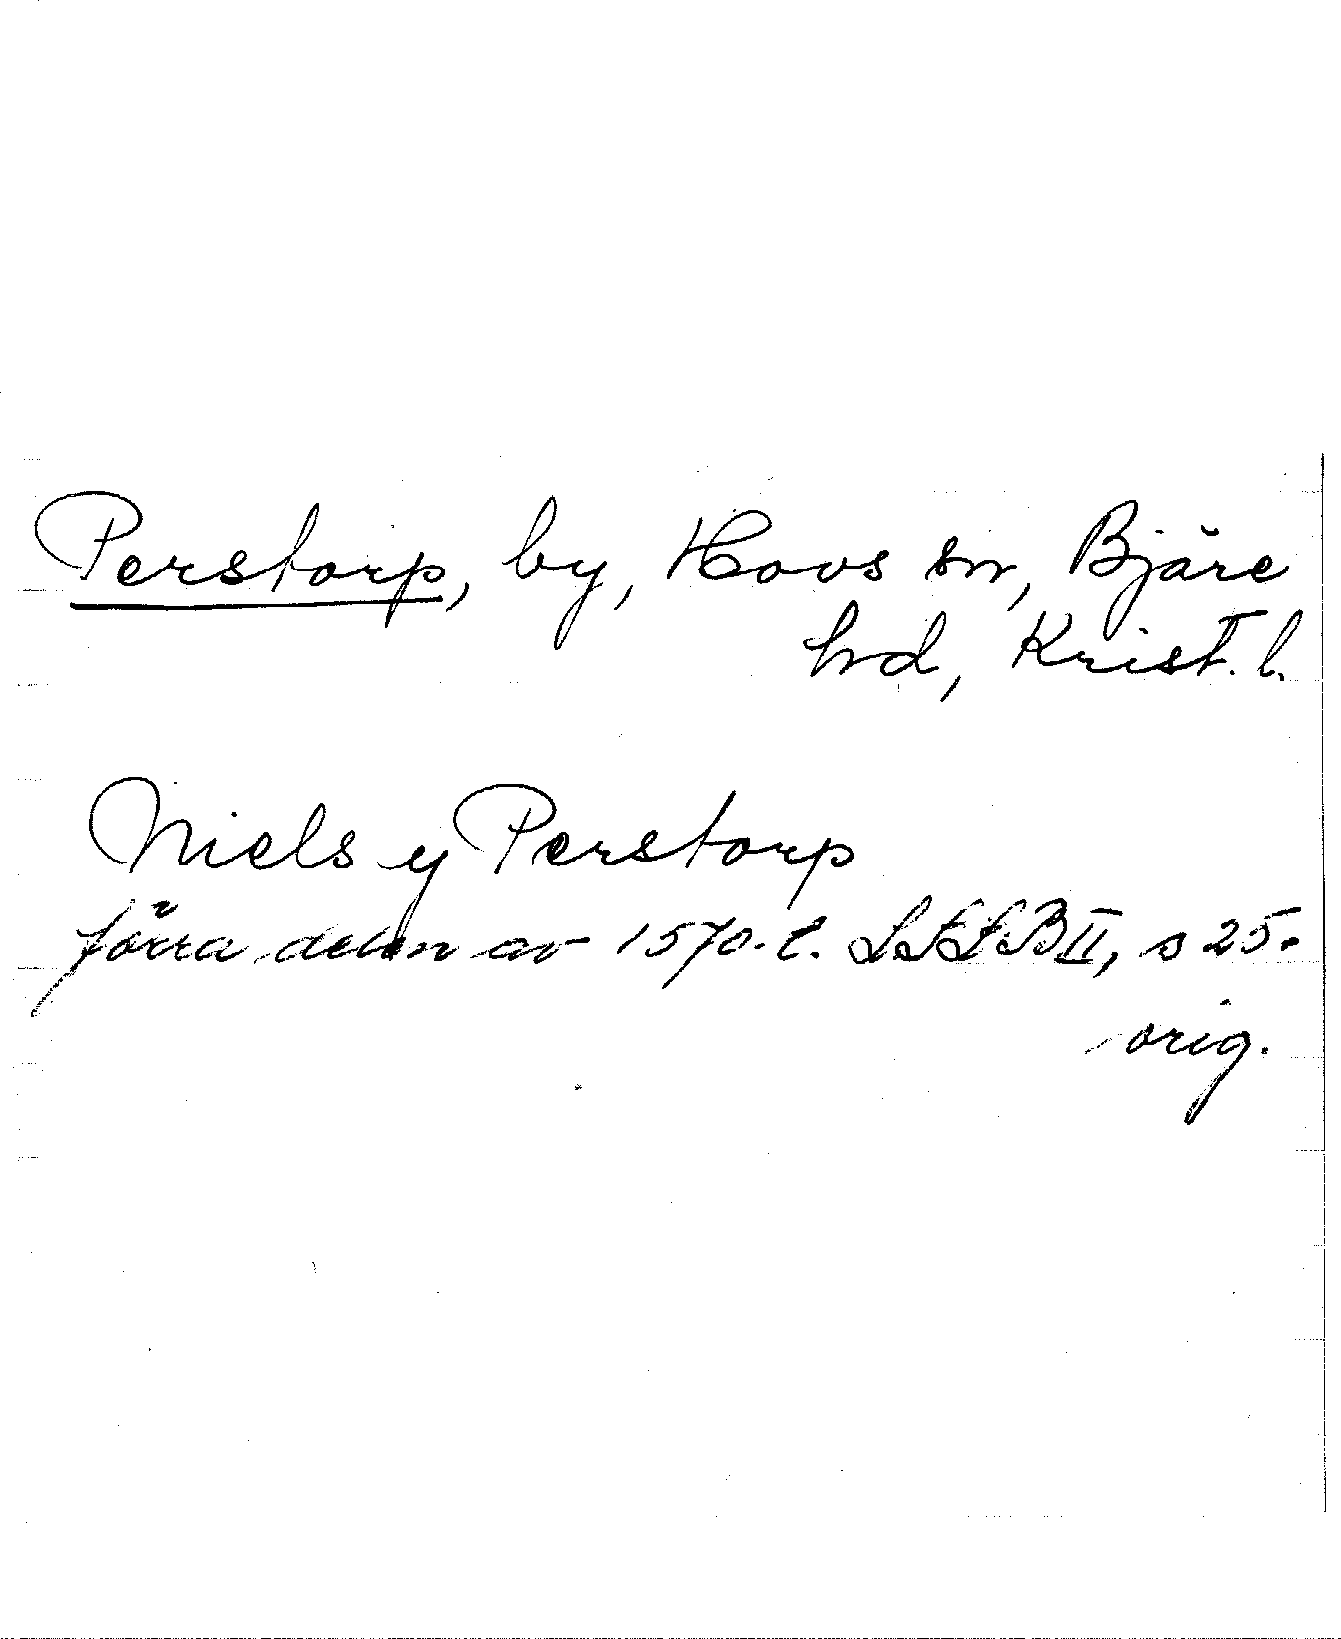 Perstorp, by, Hovs sn, Bjäre
hd, Krist. l.
Niels y Perstorp
förra delen av 1570-t. LÆLB II, s 25.
orig.